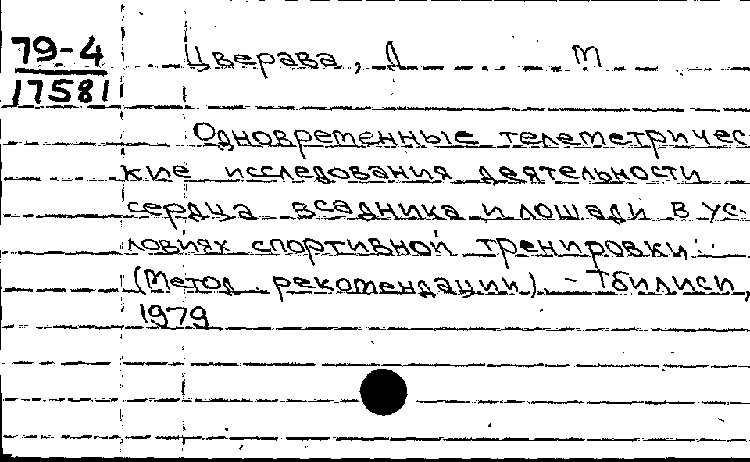 79-4
17581
Цверава, Л М
Одновременные телеметричес
кие исследования деятельности
сердца всадника и лошади в ус-
ловиях спортивной тренировки:
(Метод. рекомендации). - Тбилиси,
1979